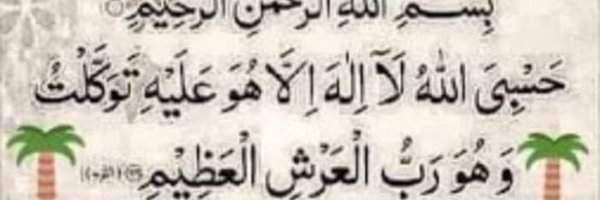 بِسْمِ اللهِ الرَّحْمٰنِ الرَّحِيْمِ
حَسْبِیَ اللهُ لَآ اِلٰهَ اِلَّا هُوَ عَلَيْهِ تَوَكَّلْتُ
وَ هُوَ رَبُّ الْعَرْشِ الْعَظِيْمِ